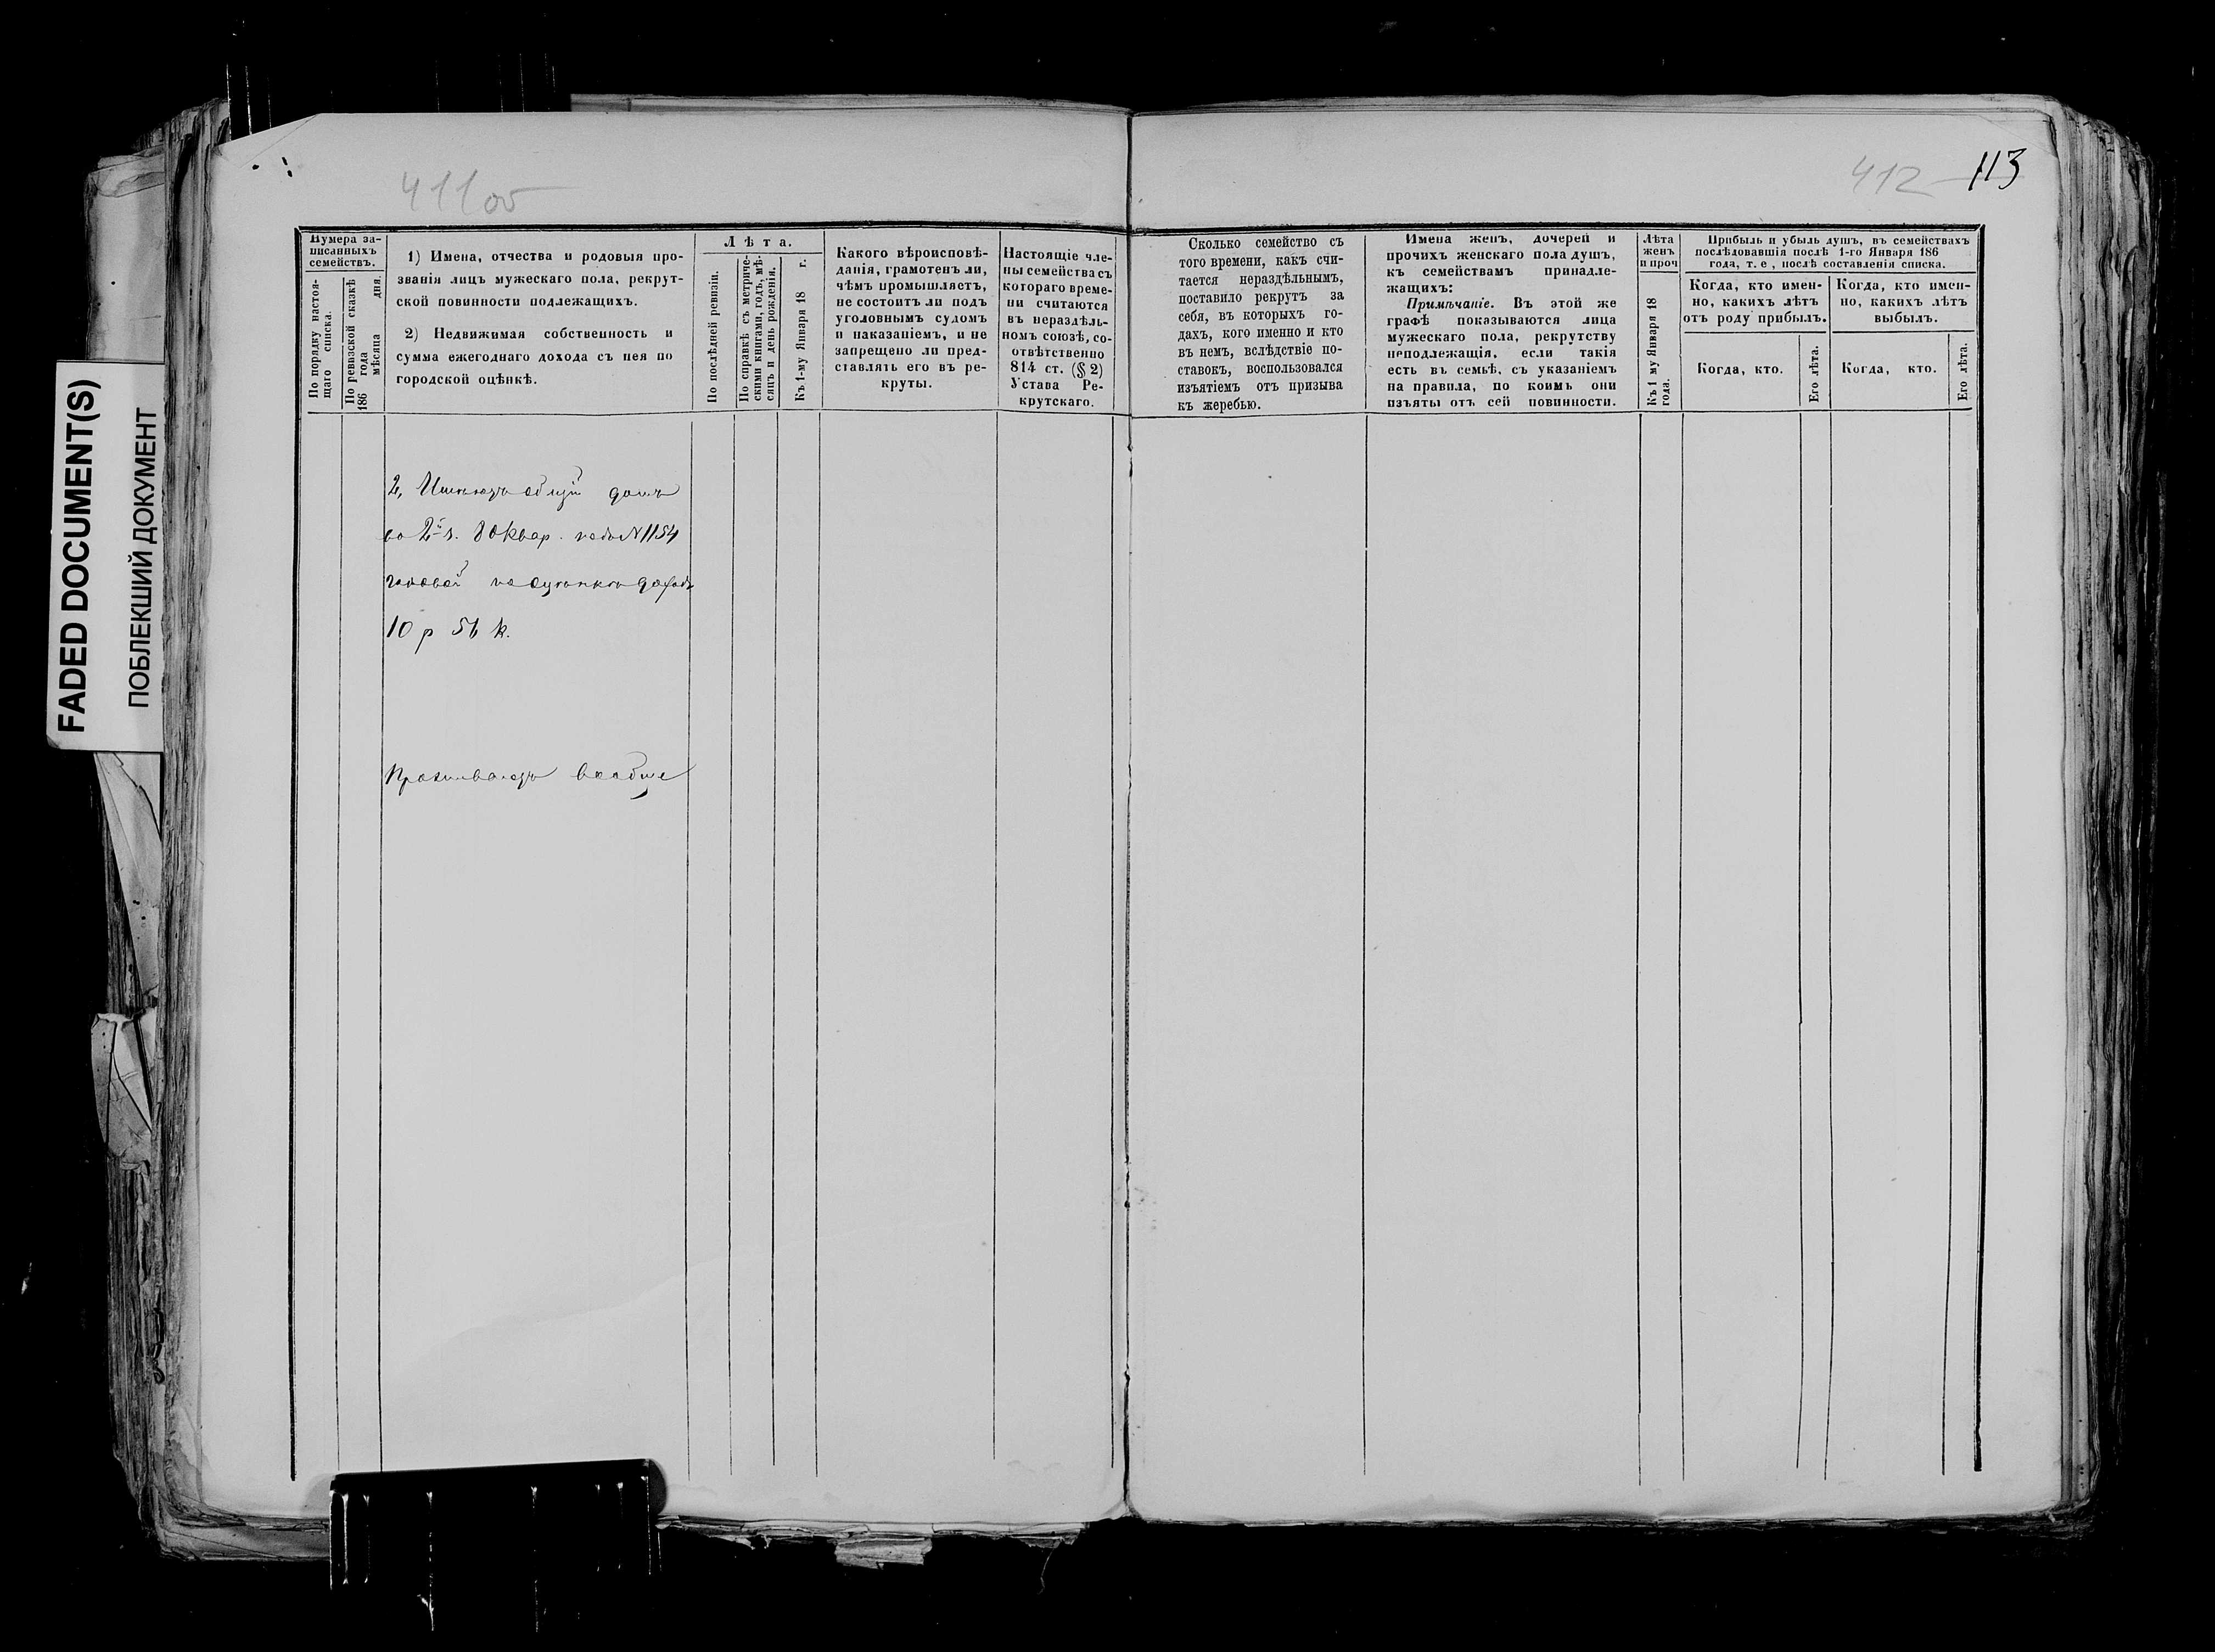 FADED DOCUMENT(S)
ПОБЛЕКШИЙ ДОКУМЕНТ
411 об
412
113
Нумера за-
писанныхъ
семействъ.
По порядку настоя-
щаго списка.
По ревизской сказкѣ
186 года
мѣсяца дня.
1) Имена, отчества и родовыя про-
званія лицъ мужескаго пола, рекрут-
ской повинности подлежащихъ.
2) Недвижимая собственность и
сумма ежегоднаго дохода съ нея по
городской оцѣнкѣ.
Лѣта.
По послѣдней ревизіи.
По справкѣ съ метриче-
скими книгами, годъ, мѣ-
сяцъ и день рожденія.
Къ 1-му Января 18 г.
Какого вѣроисповѣ-
данія, грамотенъ ли,
чѣмъ промышляетъ,
не состоитъ ли подъ
уголовнымъ судомъ
и наказаніемъ, и не
запрещено ли пред-
ставлять его въ ре-
круты.
Настоящіе чле-
ны семейства съ
котораго време-
ни считаются
въ нераздѣль-
номъ союзѣ, со-
отвѣтственно
814 ст. (§ 2)
Устава Ре-
крутскаго.
Сколько семейство съ
того времени, какъ счи-
тается нераздѣльнымъ,
поставило рекрутъ за
себя, въ которыхъ го-
дахъ, кого именно и кто
въ немъ, вслѣдствіе по-
ставокъ, воспользовался
изъятіемъ отъ призыва
къ жеребью.
Имена женъ, дочерей и
прочихъ женскаго пола душъ,
къ семействамъ принадле-
жащихъ:
Примѣчаніе. Въ этой же
графѣ показываются лица
мужескаго пола, рекрутству
неподлежащія, если такія
есть въ семьѣ, съ указаніемъ
на правила, по коимъ они
изъяты отъ сей повинности.
Лѣта
женъ
и проч
Къ 1 му Января 18
года.
Прибыль и убыль душъ, въ семействахъ
послѣдовавшія послѣ 1-го Января 186
года, т. е , послѣ составленія списка.
Когда, кто имен-
но, какихъ лѣтъ
отъ роду прибылъ.
Когда, кто.
Его лѣта.
Когда, кто имен-
но, какихъ лѣтъ
выбылъ.
Когда, кто.
Его лѣта.
2, Имѣютъ общій домъ
во 2й ч. 80 квар. подъ N 1154
годовой по оцѣнкѣ доходъ
10 р 56 к.
Проживаютъ вообще